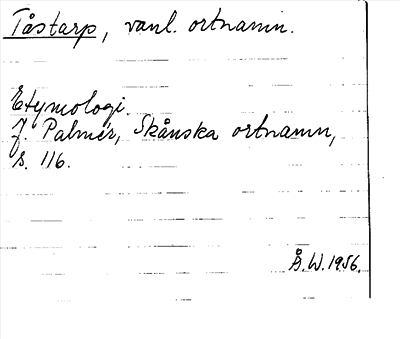 Tåstarp, vanl. ortnamn.
Etymologi.
J. Palmér, Skånska ortnamn,
s. 116.
Å.W.1956.